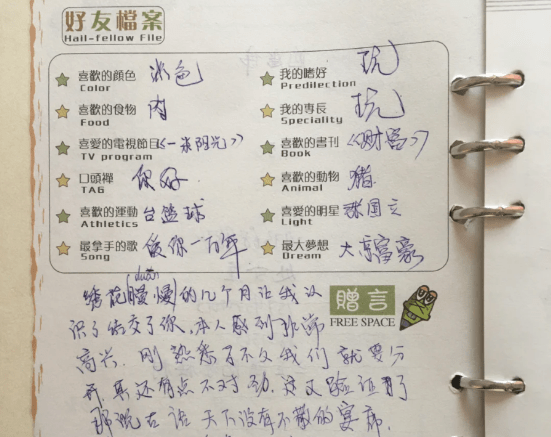 好友檔案
Hail-fellow File
喜歡的顏色 米色 我的嗜好 玩
Color Predilection
喜歡的食物 肉 我的専長 玩
Food Speciality
喜愛的電視節目 《一米阳光》 喜歡的書刊 《财富》
TV program Book
口頭禪 你好 喜歡的動物 猪
TAG Animal
喜歡的運動 台篮球 喜愛的明星
Athletics Light
最拿手的歌 爱你一万年 最大夢想 大富豪
Song Dream
贈言
FREE SPACE
的几个月让我认
识了结交了你,本人感到非常
高兴. 刚熟悉了不久我们就要分
开,真还有点不对劲,这又验证了
那说古话 天下没有不散的宴席.